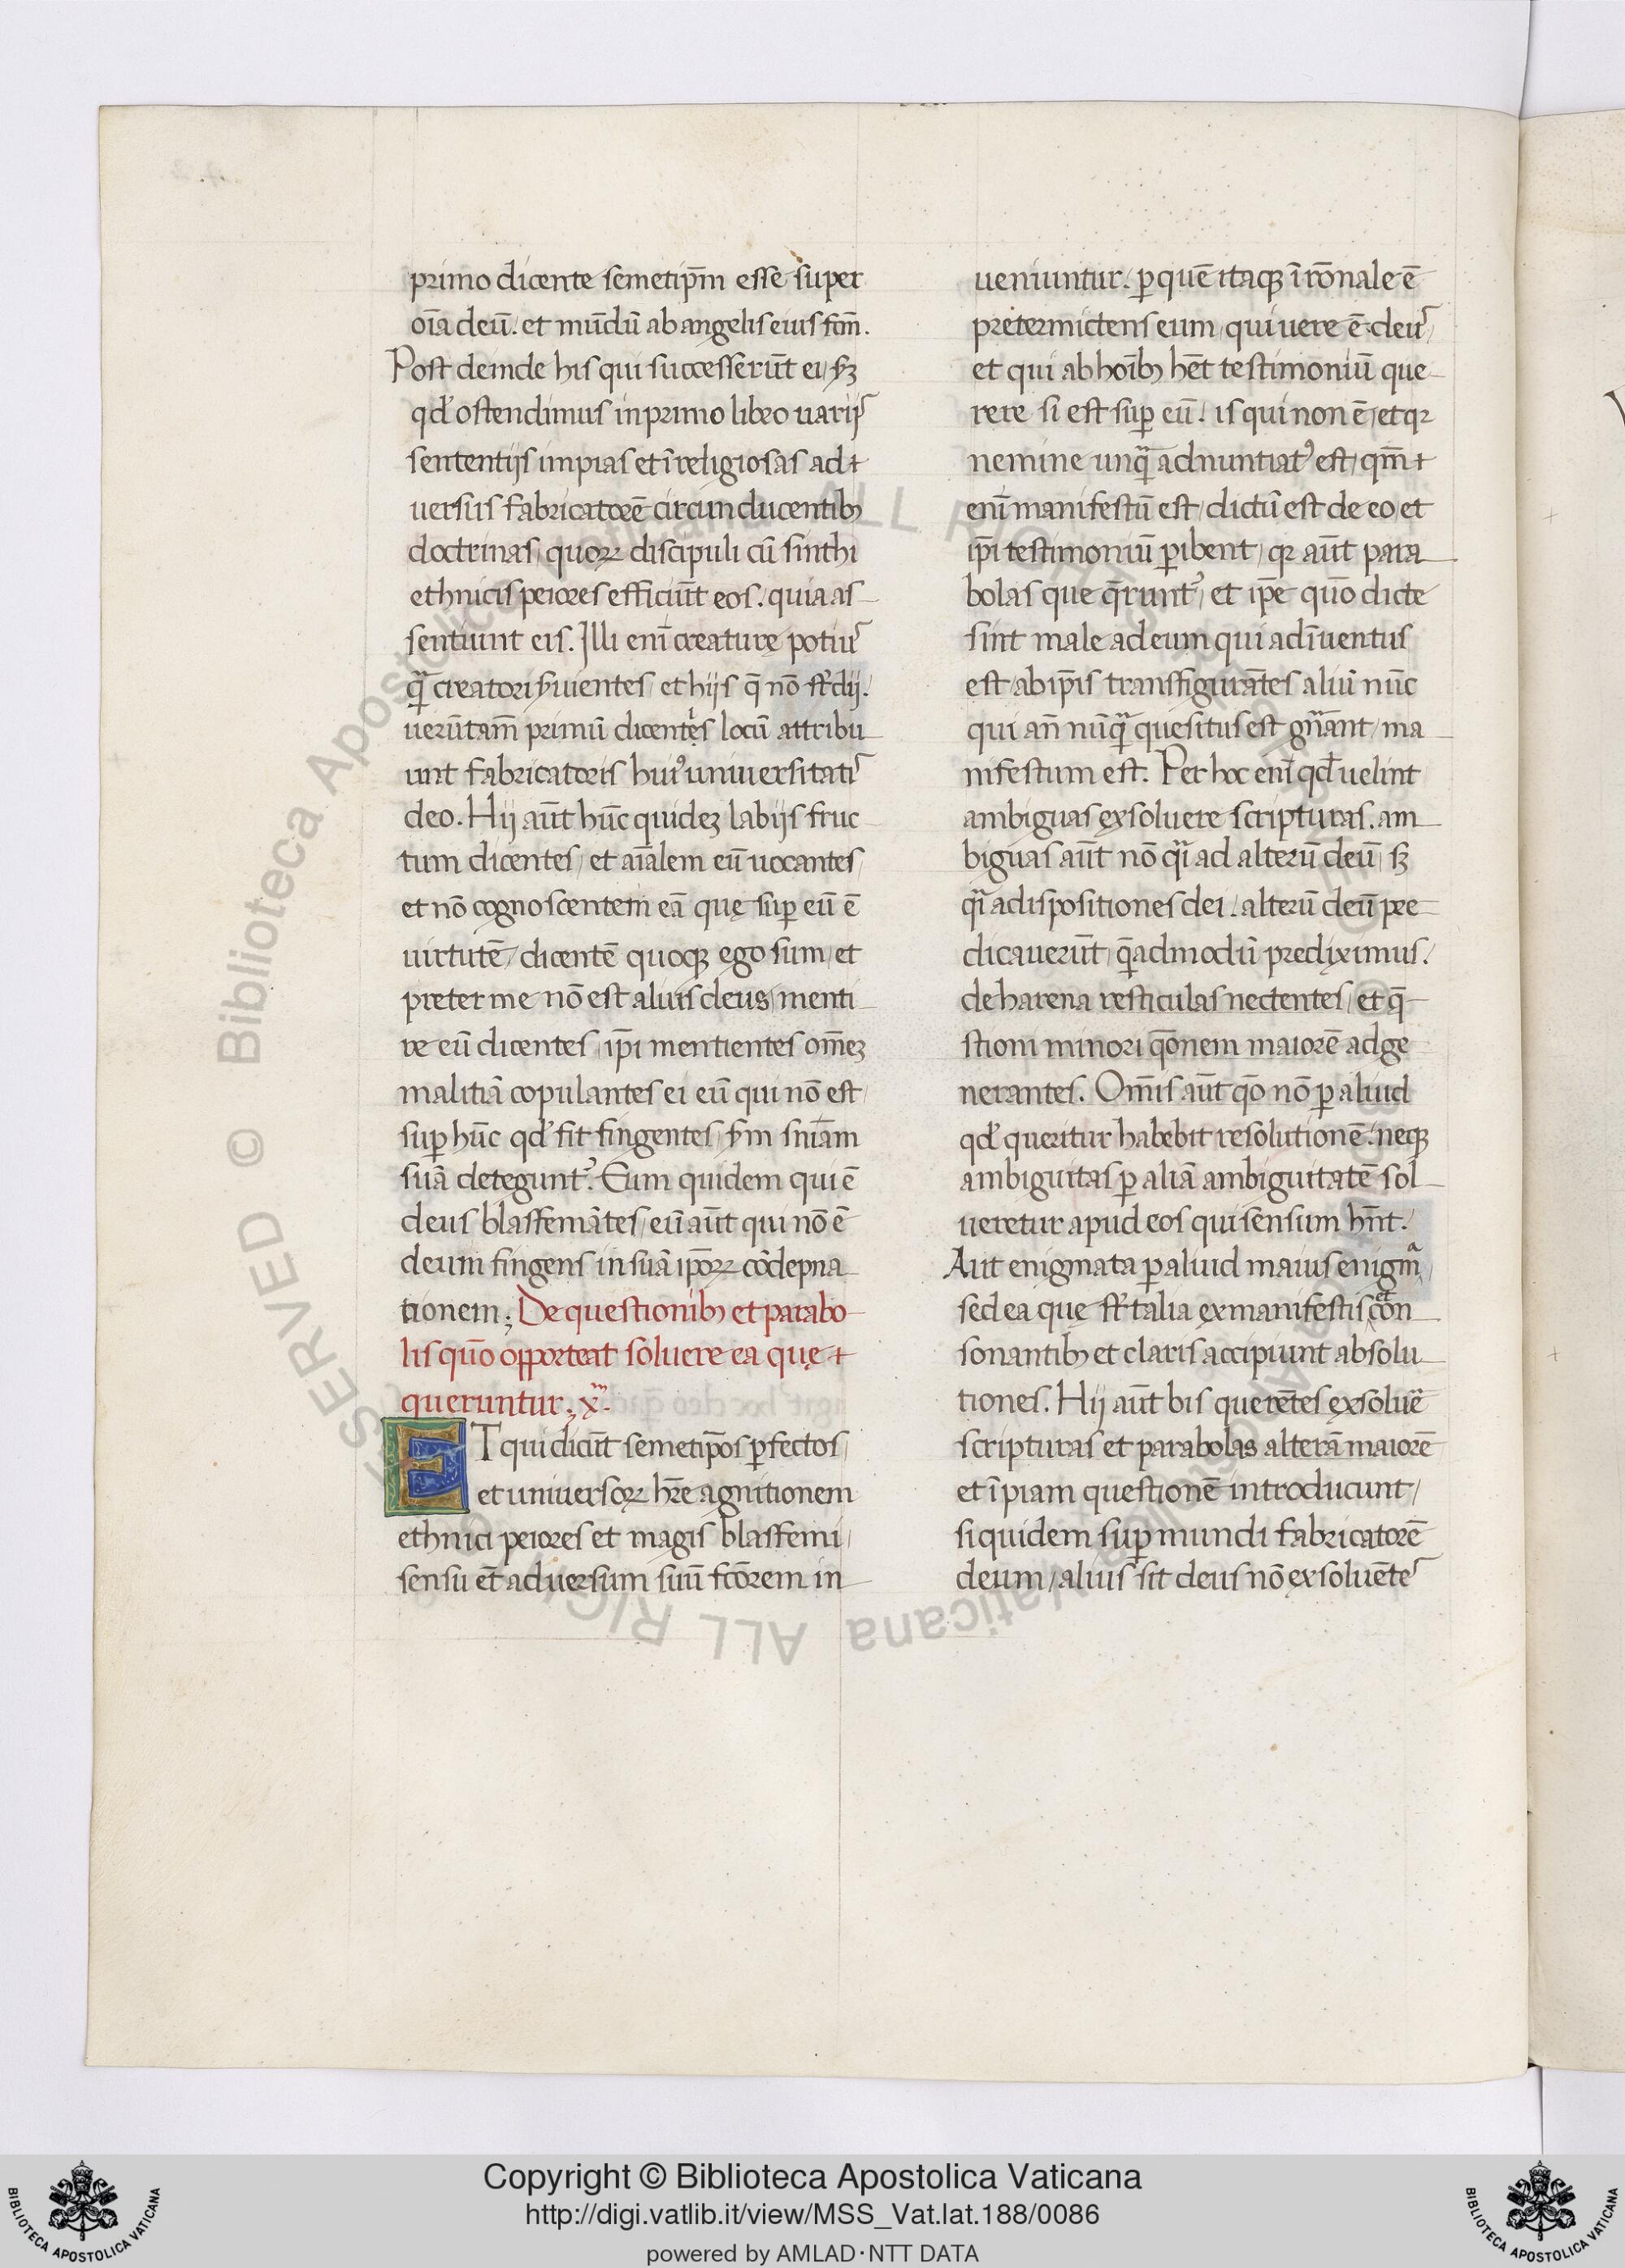 primo dicente semetip̄m esse super
oīa deū. et mūdū ab angelis eius fc̄m.
Post deinde his qui successerūt ei, sꝫ
qd' ostendimus in primo libro uarijs
sententijs impias et īreligiosas ad
uersus fabricatorē circunducentib
doctrinas, quoꝝ discipuli cū sinthi
ethnicis peiores efficiūt eos. quia as
sentiunt eis. Illi eni creature potius
qᷓ creatori s̄uientes, et hijs q̄ nō st dij.
uerūtam̄ primū dicentes locū attribu
unt fabricatoris huiꝰ uniuersitatis
deo. Hij aūt hūc quideꝫ labijs fruc
tum dicentes, et aīalem eū uocantes,
et nō cognoscentem eā quę suꝑ eū ē
uirtutē, dicentē quoqꝫ ego sum, et
preter me nō est alius deus, menti
re eū dicentes, ip̄i mentientes om̄eꝫ
malitiā copulantes ei eū qui nō est,
suꝑ hūc qd' fit fingentes, s̄m sniam
suā detegunt᷑. Eum quidem qui ē
deus blasfemātes, eū aūt qui nō ē
deum fingens in suā ip̄oꝝ cōdepna
tionem; De questionib et parabo
lis quō opporteat soluere ea quę
queruntur; x.
ET qui dicūt semetip̄os ꝑfectos,
et uniuersoꝝ hr̄e agnitionem
ethnici peiores et magis blasfemi,
sensu et̄ aduersum suū fc̄orem in
ueniuntur. ꝑ quē itaqꝫ īrōnale ē
pretermictens eum, qui uere ē deus,
et qui ab hoīb hēt testimoniū que
rere si est suꝑ eū. is qui non ē, et qr
nemine unqᷓ adnuntiatꝰ est, qm̄
eni manifestū est, dictū est de eo, et
ip̄i testimoniū ꝑibent, qr aūt para
bolas que q̄runt᷑, et ip̄e quō dicte
sint male ad eum qui adīuentus
est, ab ip̄is transfigurātes aliū nūc
qui an̄ nūqᷓ quesitus est gn̄ant, ma
nifestum est. Per hoc eni qd' uelint
ambiguas exsoluere scripturas. am
biguas aūt nō qᷓi ad alterū deū, sꝫ
qᷓi ad ispositiones dei. alterū deū pre
dicauerūt, q̄admodū prediximus.
de harena resticulas nectentes, et q̄
stioni minori q̄onem maiorē adge
nerantes. Om̄is aūt qō nō ꝑ aliud
qd' queritur habebit resolutionē. neqꝫ
ambiguitas ꝑ aliā ambiguitatē sol
ueretur apud eos qui sensum hn̄t.
Aut enigmata ꝑ aliud maius enigmᵃ,
sed ea que st talia ex manifestis et con
sonantib et claris accipiunt absolu
tiones. Hij aūt bis querētes exsoluē
scripturas et parabolas alterā maiorē
et īpiam questionē introducunt,
siquidem suꝑ mundi fabricatorē
deum, alius sit deus nō exsoluētes
ALL RIGHTS RESERVED © Biblioteca Apostolica Vaticana
Copyright © Biblioteca Apostolica Vaticana
http://digi.vatlib.it/view/MSS_Vat.lat.188/0086
powered by AMLAD·NTT DATA
BIBLIOTECA APOSTOLICA VATICANA
BIBLIOTECA APOSTOLICA VATICANA